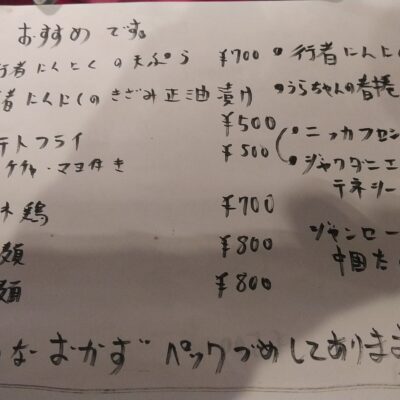 おすすめです。
行者にんにくの天ぷら ¥700
者にんにくのきざみ正油漬け ¥500
テトフライ ¥500
ケチャ・マヨ付き
木鶏 ¥700
麺 ¥800
麺 ¥800
・行者にんに
・うらちゃんの春捲
・ニッカフロン
・ジャックダニエ
テネシー
ジャンロー
中国
なおかず パックづめしてあります